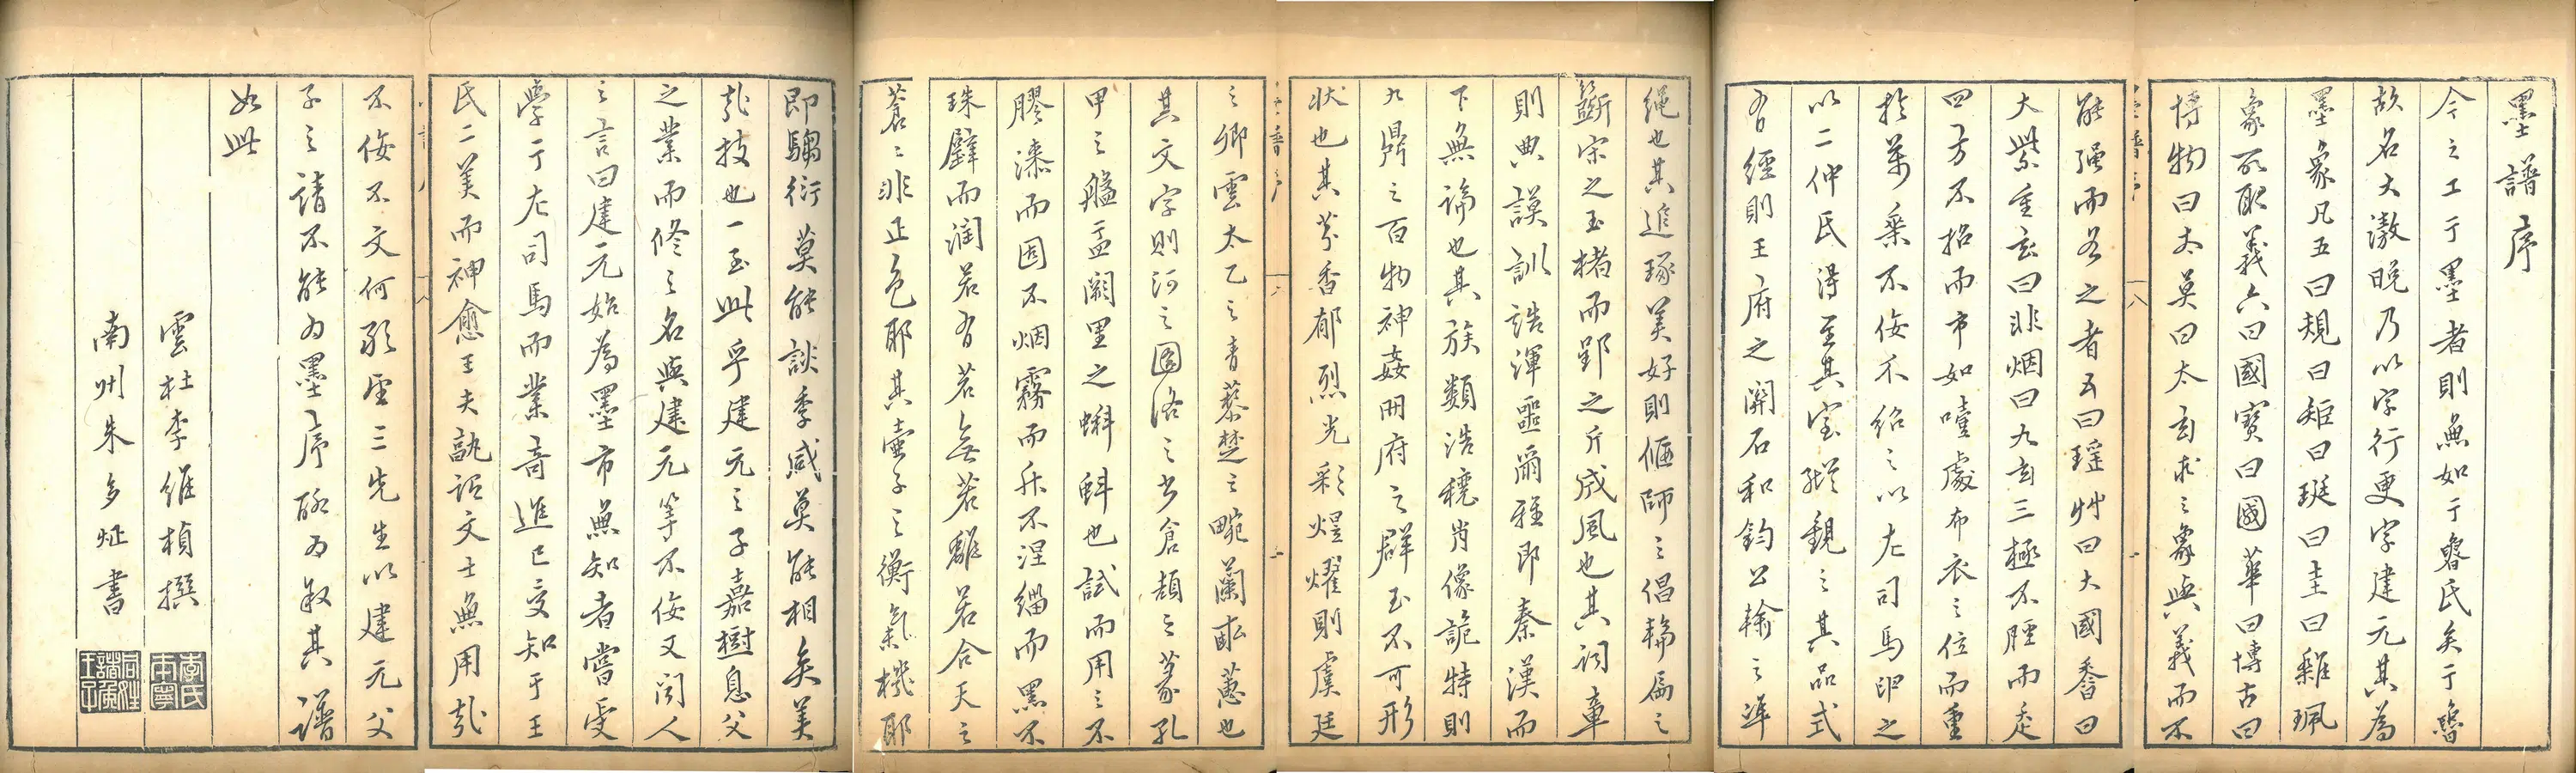 墨譜序
今之工于墨者則無如于魯氏矣于魯
故名大滶晚乃以字行更字建元其為
墨象凡五曰規曰矩曰珽曰圭曰雜珮
象所取義六曰國寶曰國華曰博古曰
博物曰太莫曰太玄求之象與義而不
能殫而名之者五曰瑶艸曰大國香曰
大紫重玄曰非烟曰九玄三極不脛而走
四方不招而市如嘻處布衣之位而重
於萬乘不佞不紹之以左司馬卬之
以二仲氏得至其室縱觀之其品式
有經則王府之關石和鈞公輸之準
繩也其追琢美好則偃師之倡輪扁之
斵宋之玉楮而郢之斤成風也其詞章
則典謨訓誥渾噩爾雅即秦漢而
下無論也其族類浩穰肖像詭特則
九鼎之百物神姦冊府之群玉不可形
狀也其芬香郁烈光彩熠燿則虞廷
之卿雲太乙之青藜楚之畹蘭畮蕙也
其文字則河之圖洛之書倉頡之篆孔
甲之盤盂闕里之蝌蚪也試而用之不
膠漆而固不烟霧而升不涅緇而黑不
珠璧而潤若有若無若離若合天之
蒼蒼非正色耶其壷子之衡氣機耶
即騶衍莫能談季咸莫能相矣美
哉技也一至此乎建元之子嘉樹息父
之業而修之名與建元等不佞又聞人
之言曰建元始為墨市無知者嘗受
學于左司馬而業音進已受知于王
氏二美而神愈王夫孰謂文士無用哉
不佞不文何敢望三先生以建元父
子之請不能為墨序聊為敘其譜
如此
雲杜李維楨撰
南州朱多炡書
李氏本寧